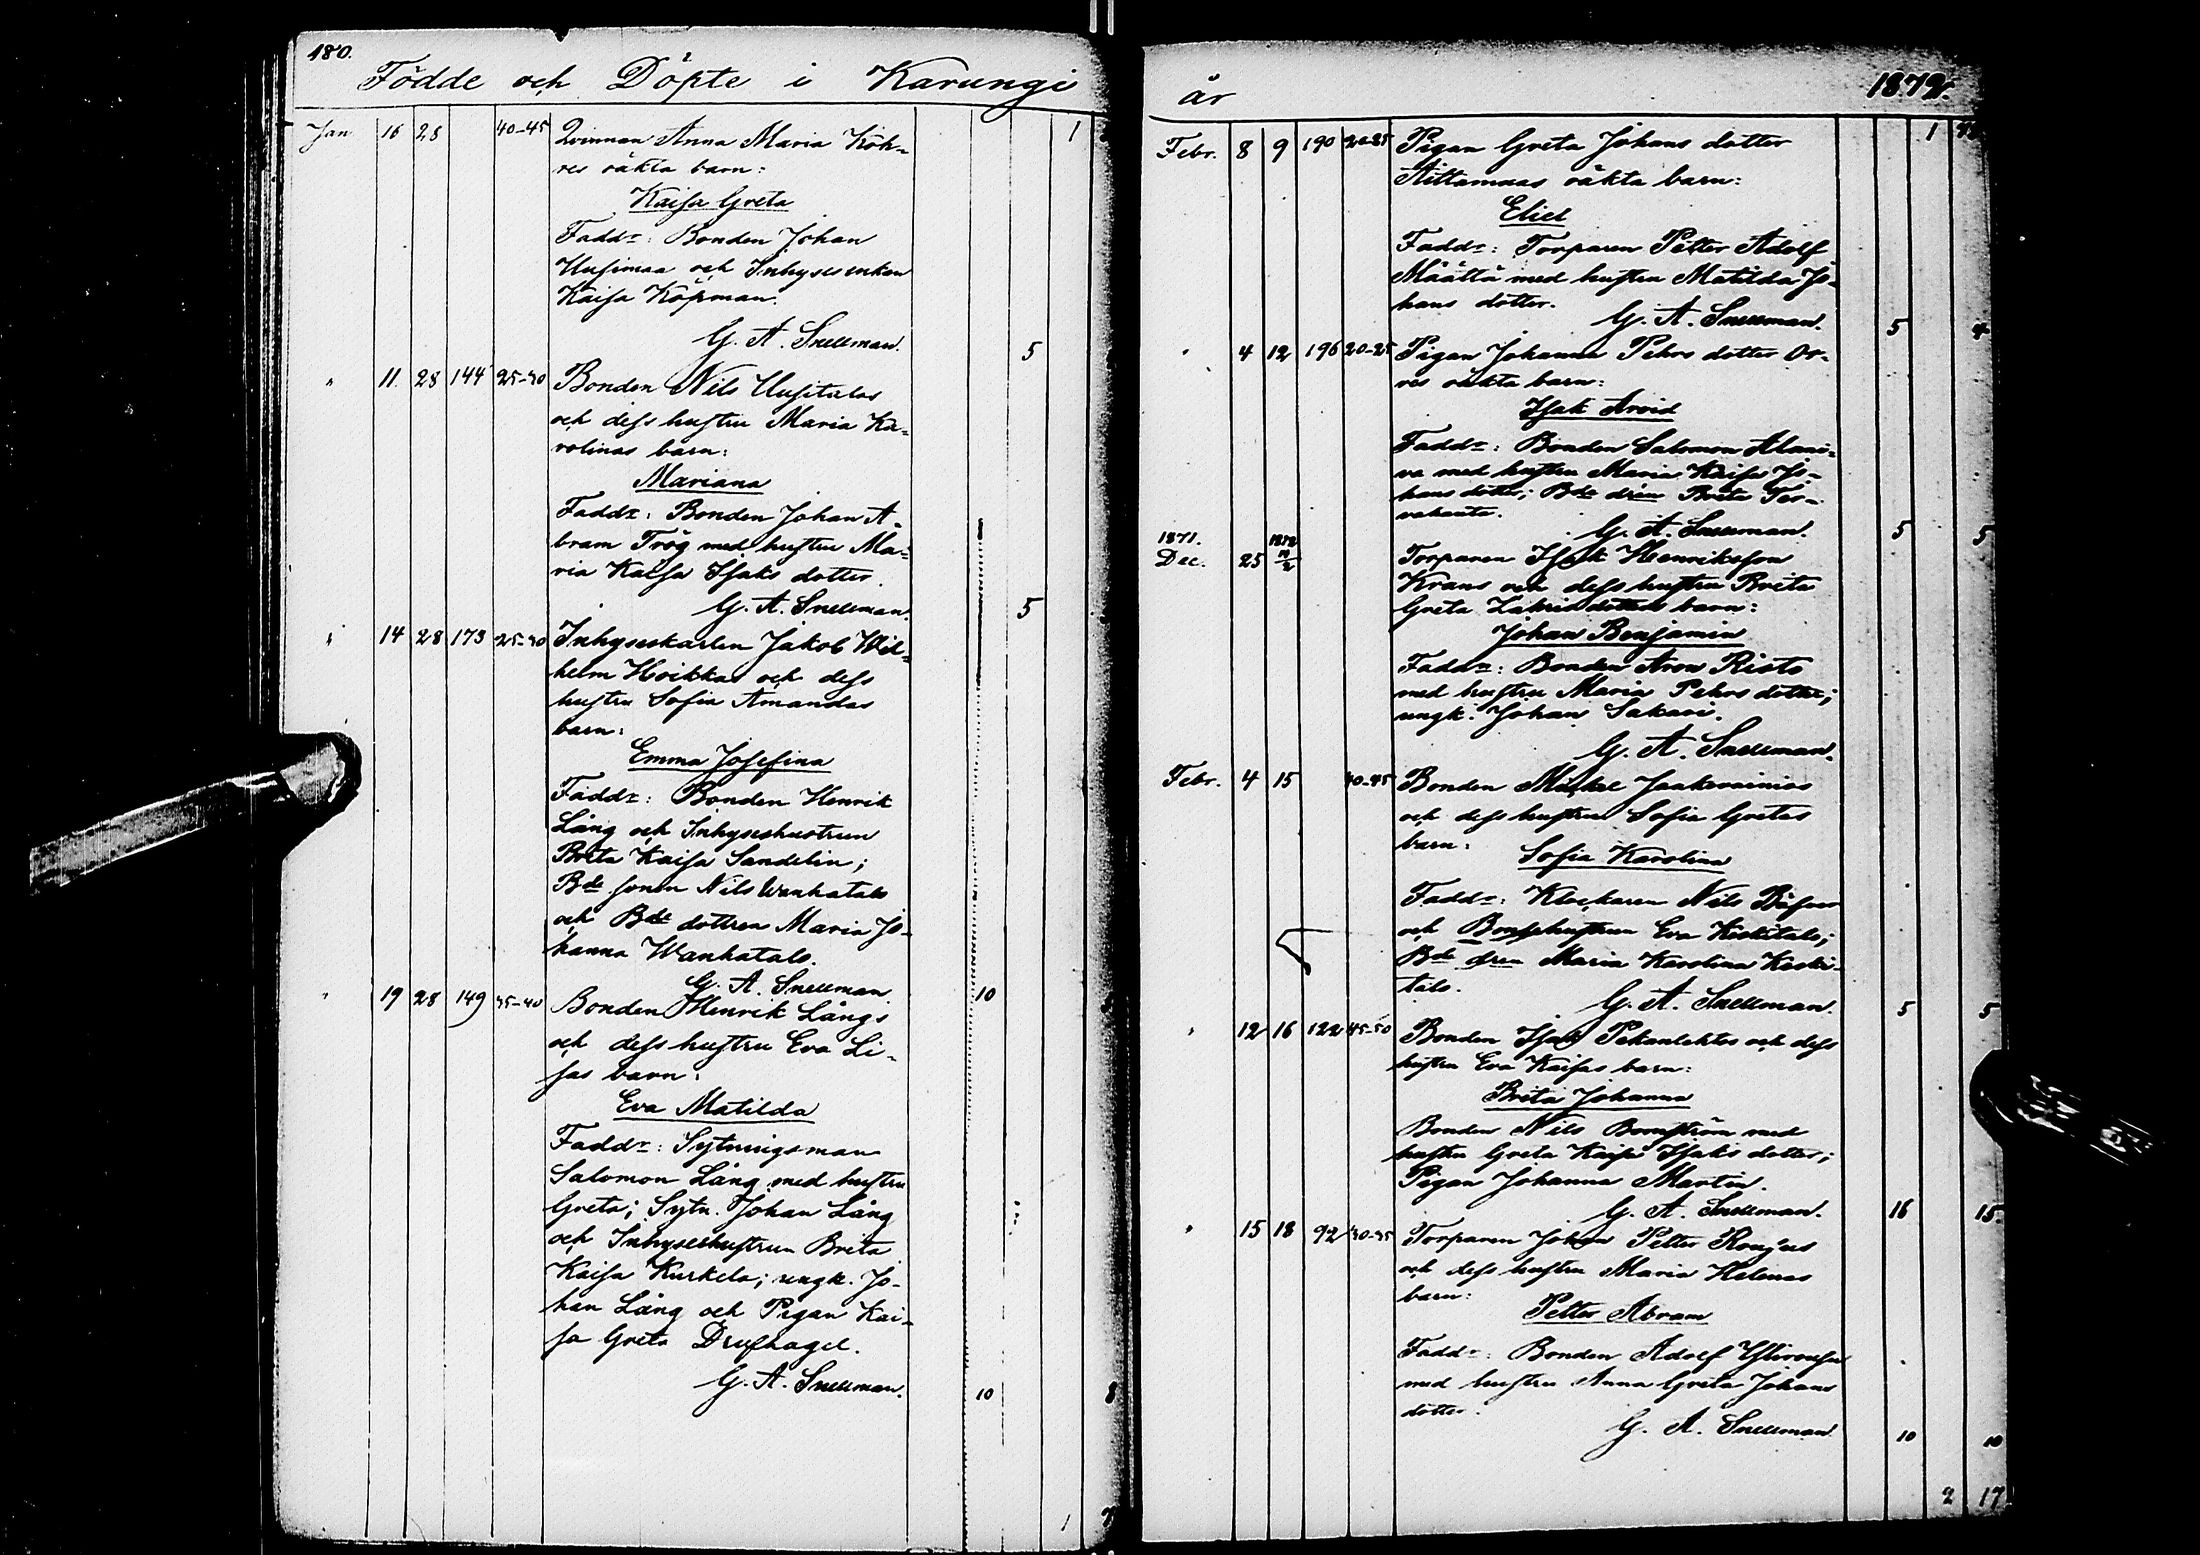 180.
Födde och Döpte i Karungi
Jan. 16 28 40-45 Qvinnan Anna Maria Köh-
res oäkta barn: 1
Kaisa Greta
Fadd:r: Bonden Johan
Uusimaa och Inhysesenkan
Kaisa Köpman.
G. A. Snellman. 5
" 11. 28 144 25-30 Bonden Nils Uusitalos
och dess hustru Maria Ka-
rolinas barn:
Mariana
Fadd:r: Bonden Johan A-
bram Trög med hustru Ma-
ria Kaisa Isaks dotter.
G. A. Snellman. 5
" 14 28 173 25-30 Inhyseskarlen Jakob Wil-
helm Hoikkas och dess
hustru Sofia Amandas
barn:
Emma Josefina
Fadd:r: Bonden Henrik
Lång och Inhyseshustrun
Brita Kaisa Sandelin;
Bde sonen Nils Wanhatalo
och Bde dottren Maria Jo-
hanna Wanhatalo.
G. A. Snellman. 10
" 19 28 149 35-40 Bonden Henrik Långs
och dess hustru Eva Li-
sas barn:
Eva Matilda
Fadd:r: Sytningsman
Salomon Lång med hustru
Greta; Sytn. Johan Lång
och Inhyseshustrun Brita
Kaisa Kurkela; ungk. Jo-
han Lång och Pigan Kai-
sa Greta Drufhagel.
G. A. Snellman. 10 8
1
år 1872.
Febr. 8 9 190 20-25 Pigan Greta Johans dotter 1
Aittamaas oäkta barn:
Eliel
Fadd:r: Torparen Petter Adolf
Määttä med hustru Matilda Jo-
hans dotter.
G. A. Snellman. 5 4
" 4 12 196 20-25 Pigan Johanna Pehrs dotter Or-
res oäkta barn:
Isak Arvid
Fadd:r: Bonden Salomon Alani-
va med hustru Maria Kaisa Jo-
hans dotter; Bde dren Brita Ter-
vakanta.
G. A. Snellman. 5 5
1871. 1872
Dec. 25 10/2 Torparen Isak Henriksson
Krans och dess hustru Brita
Greta Zakrisdotters barn:
Johan Benjamin
Fadd:r: Bonden Aron Risto
med hustru Maria Pehrs dotter;
ungk. Johan Sakari.
G. A. Snellman.
Febr. 4 15 40-45 Bonden Mickel Jaakovainios
och dess hustru Sofia Gretas
barn:
Sofia Karolina
Fadd:r: Klockaren Nils
och Bondehustrun Eva Keskitalo;
Bde dren Maria Karolina Keski-
talo.
G. A. Snellman. 5 5
" 12 16 122 45-50 Bonden Isak Pekanlehtos och dess
hustru Eva Kaisas barn:
Brita Johanna
Bonden Nils Bomström med
hustru Greta Kaisa Isaks dotter;
Pigan Johanna Martin.
G. A. Snellman. 16 15
" 15 18 92 30-35 Torparen Johan Petter Ronjus
och dess hustru Maria Helenas
barn:
Petter Abram
Fadd:r: Bonden Adolf
med hustru Anna Greta Johans
dotter.
G. A. Snellman. 10 10
2 17